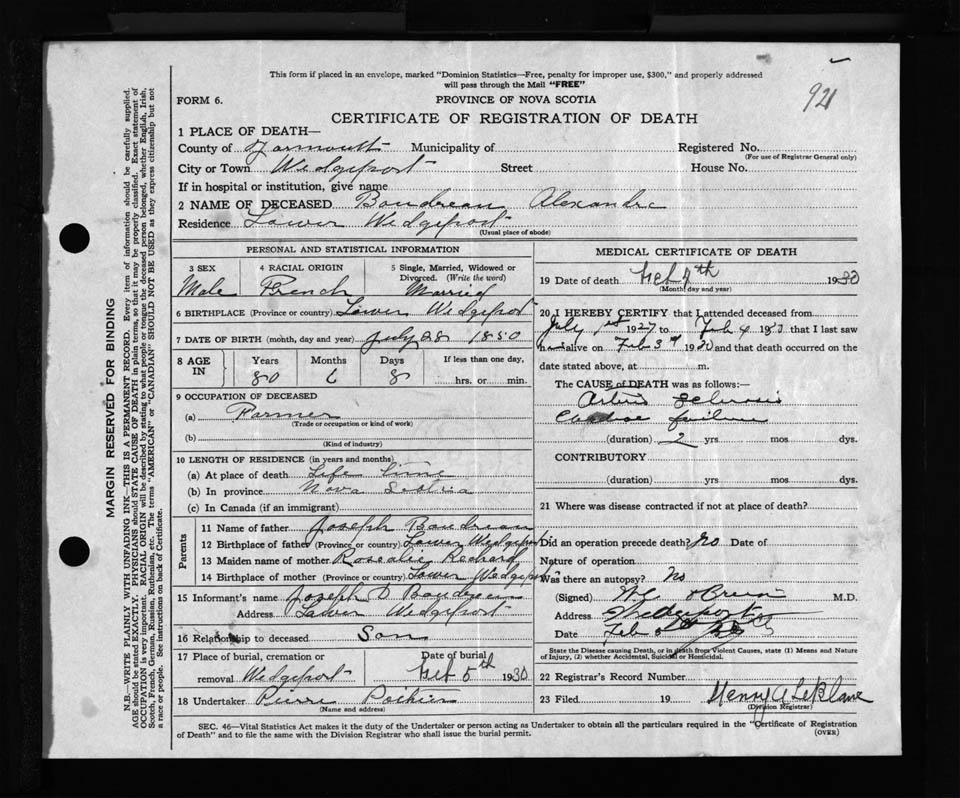 This form if placed in an envelope, marked "Dominion Statistics—Free, penalty for improper use, $300," and properly addressed
will pass through the Mail "FREE"
921
FORM 6.
PROVINCE OF NOVA SCOTIA
CERTIFICATE OF REGISTRATION OF DEATH
1 PLACE OF DEATH—
County of Yarmouth Municipality of Registered No.
(For use of Registrar General only)
City or Town Wedgeport Street House No.
If in hospital or institution, give name
2 NAME OF DECEASED Boudreau Alexandre
Residence Lower Wedgeport
(Usual place of abode)
PERSONAL AND STATISTICAL INFORMATION
3 SEX 4 RACIAL ORIGIN 5 Single, Married, Widowed or
Divorced. (Write the word)
Male French Married
6 BIRTHPLACE (Province or country) Lower Wedgeport
7 DATE OF BIRTH (month, day and year) July 28 1850
8 AGE IN Years Months Days If less than one day,
80 6 8 hrs. or min.
9 OCCUPATION OF DECEASED
(a) Farmer
(Trade or occupation or kind of work)
(b)
(Kind of industry)
10 LENGTH OF RESIDENCE (in years and months)
(a) At place of death Life time
(b) In province Nova Scotia
(c) In Canada (if an immigrant)
Parents
11 Name of father Joseph Boudreau
12 Birthplace of father (Province or country) Lower Wedgeport
13 Maiden name of mother Rosalie Richard
14 Birthplace of mother (Province or country) Lower Wedgeport
15 Informant's name Joseph D Boudreau
Address Lower Wedgeport
16 Relationship to deceased Son
17 Place of burial, cremation or Date of burial
removal Wedgeport Feb 5th 1930
18 Undertaker Pierre Pothier
(Name and address)
MEDICAL CERTIFICATE OF DEATH
19 Date of death Feb 4th 1930
(Month, day and year)
20 I HEREBY CERTIFY that I attended deceased from
July 1st 1927 to Feb 4 1930 that I last saw
h alive on Feb 3rd 1930 and that death occurred on the
date stated above, at m.
The CAUSE of DEATH was as follows:—
Arterio Sclerosis
Cardiac failure
(duration) 2 yrs mos dys.
CONTRIBUTORY
(duration) yrs mos dys.
21 Where was disease contracted if not at place of death?
Did an operation precede death? No Date of
Nature of operation
Was there an autopsy? No
(Signed) O'Brien M.D.
Address Wedgeport
Date Feb 5
State the Disease causing Death, or in death from Violent Causes, state (1) Means and Nature
of Injury, (2) whether Accidental, Suicidal or Homicidal.
22 Registrar's Record Number
23 Filed 19 Henry A LeBlanc
(Division Registrar)
SEC. 46—Vital Statistics Act makes it the duty of the Undertaker or person acting as Undertaker to obtain all the particulars required in the "Certificate of Registration
of Death" and to file the same with the Division Registrar who shall issue the burial permit.
(OVER)
MARGIN RESERVED FOR BINDING
N.B.—WRITE PLAINLY WITH UNFADING INK—THIS IS A PERMANENT RECORD. Every item of information should be carefully supplied.
AGE should be stated EXACTLY. PHYSICIANS should STATE CAUSE OF DEATH in plain terms, so that it may be properly classified. Exact statement of
OCCUPATION is very important. RACIAL ORIGIN will be described by stating to what people or tongue the deceased person belonged, whether English, Irish,
Scotch, French, German, Russian, Ruthenian, etc. The terms "AMERICAN" or "CANADIAN" SHOULD NOT BE USED as they express citizenship but not
a race or people. See instructions on back of Certificate.